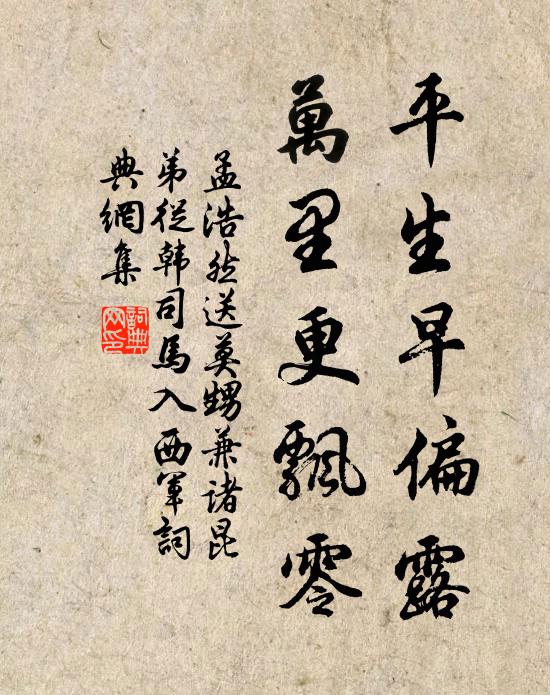 平生早偏露
萬里更飄零
孟浩然送莫甥兼諸昆
弟從韓司馬入西軍詞
典網集
詞典網印